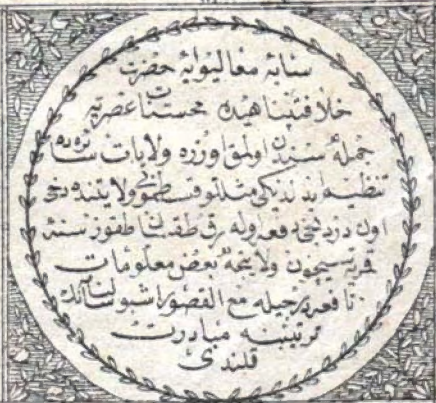 سایهٔ معالیوایهٔ حضرت
خلافتپناهیده محسنات عصریه
جملهٔ سنیه‌سندن اولمق اوزره ولایات سائره‌ده
تنظیم ایدلدیکی مثللو قسطمونی ولایتنده دخی
اون دردنجی دفعه اوله‌رق طقسان طقوز سنهٔ
قمریه‌سیچون ولایتجه بعض معلومات
نافعه درجیله مع القصور اشبو سالنامه‌نك
ترتیبنه مبادرت
قلندی